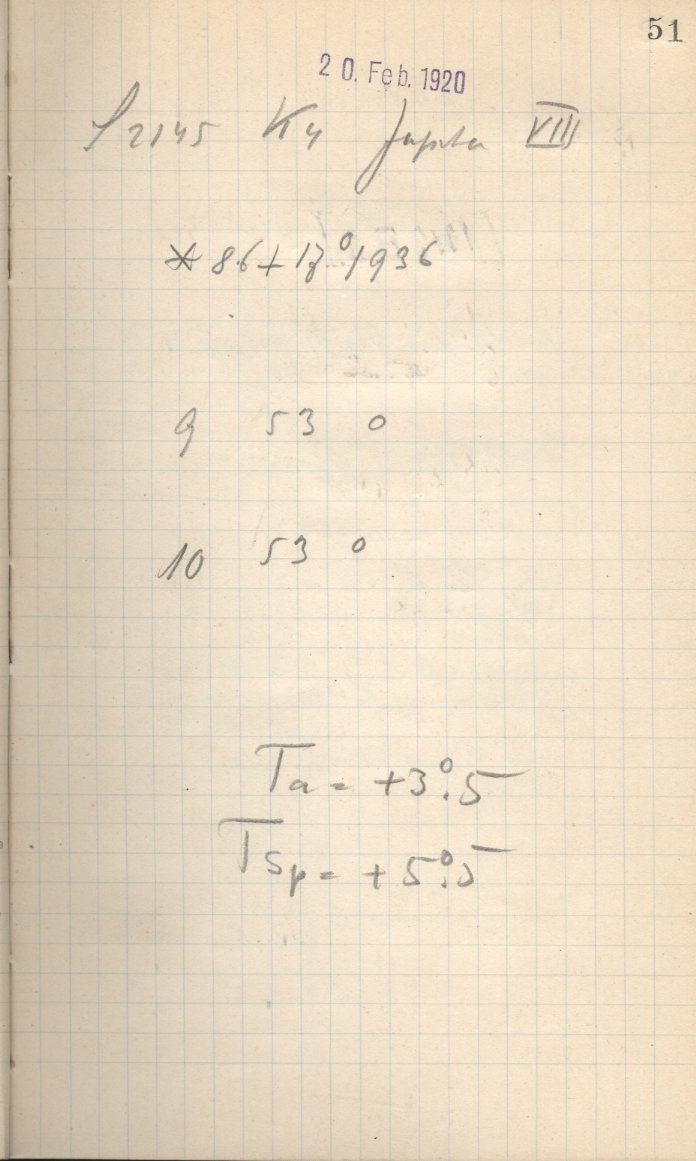 51
20. Feb. 1920
S2145 K4 Jupiter VIII
* 8.6 + 17°1936
9 53 0
10 53 0
Ta = +3°.5
Tsp = +5°.5